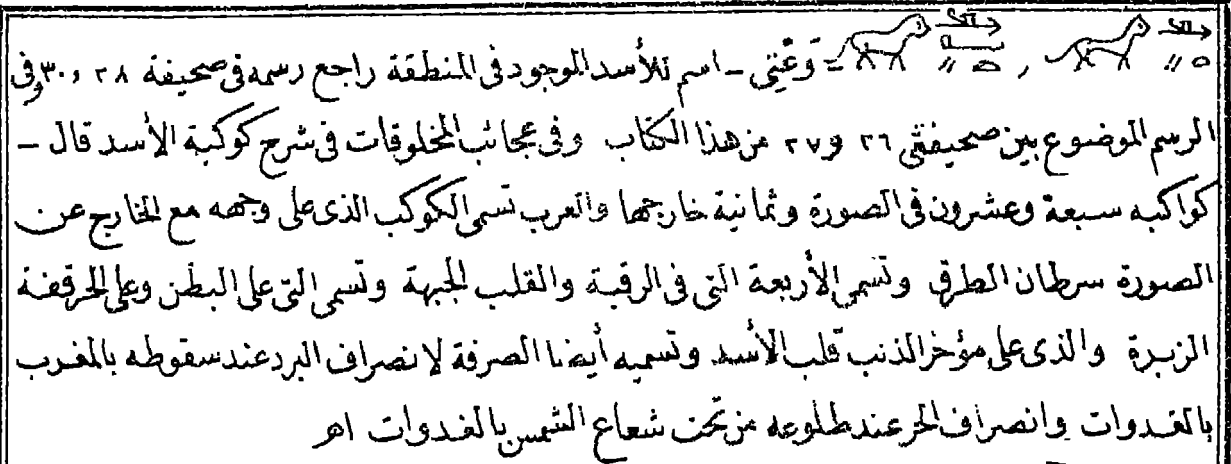 = وَعْتِى ـ اسم للأسد الموجود فى المنطقة راجع رسمه فى صحيفة ٢٨ و ٣٠ وفى
الرسم الموضوع بين صحيفتى ٢٦ و ٢٧ من هذا الكتاب وفى عجائب المخلوقات فى شرح كوكبة الأسد قال ـ
كواكبه سبعة وعشرون فى الصورة وثمانية خارجها والعرب تسمى الكوكب الذى على وجهه مع الخارج عن
الصورة سرطان الطرف وتسمى الأربعة التى فى الرقبة والقلب الجبهة وتسمى التى على البطن وعلى الحرقفة
الزبرة والذى على مؤخر الذنب قلب الأسد وتسميه أيضا الصرفة لانصراف البرد عند سقوطه بالمغرب
بالغدوات وانصراف الحر عند طلوعه من تحت شعاع الشمس بالغدوات اهـ